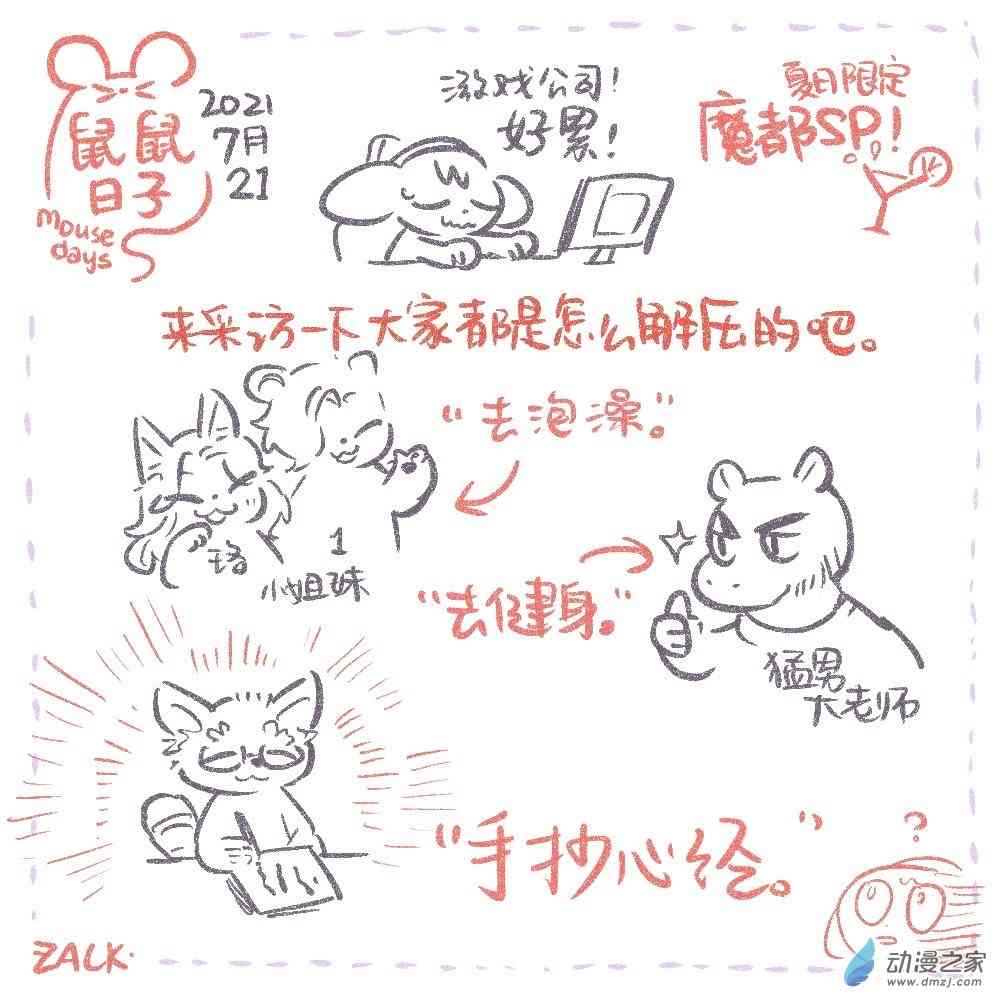 鼠鼠
日子
mouse
days
2021
7月
21
游戏公司!
好累!
夏日限定
魔都SP!
来采访一下大家都是怎么解压的吧。
"去泡澡。"
珞
1
小姐妹
"去健身。"
猛男
大老师
"手抄心经。"
?
ZALK.
动漫之家
www.dmzj.com